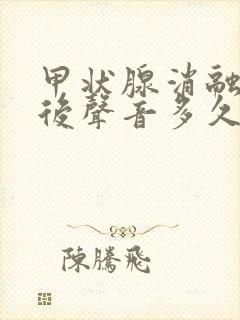 甲状腺消融
後聲音多久
陳騰飛